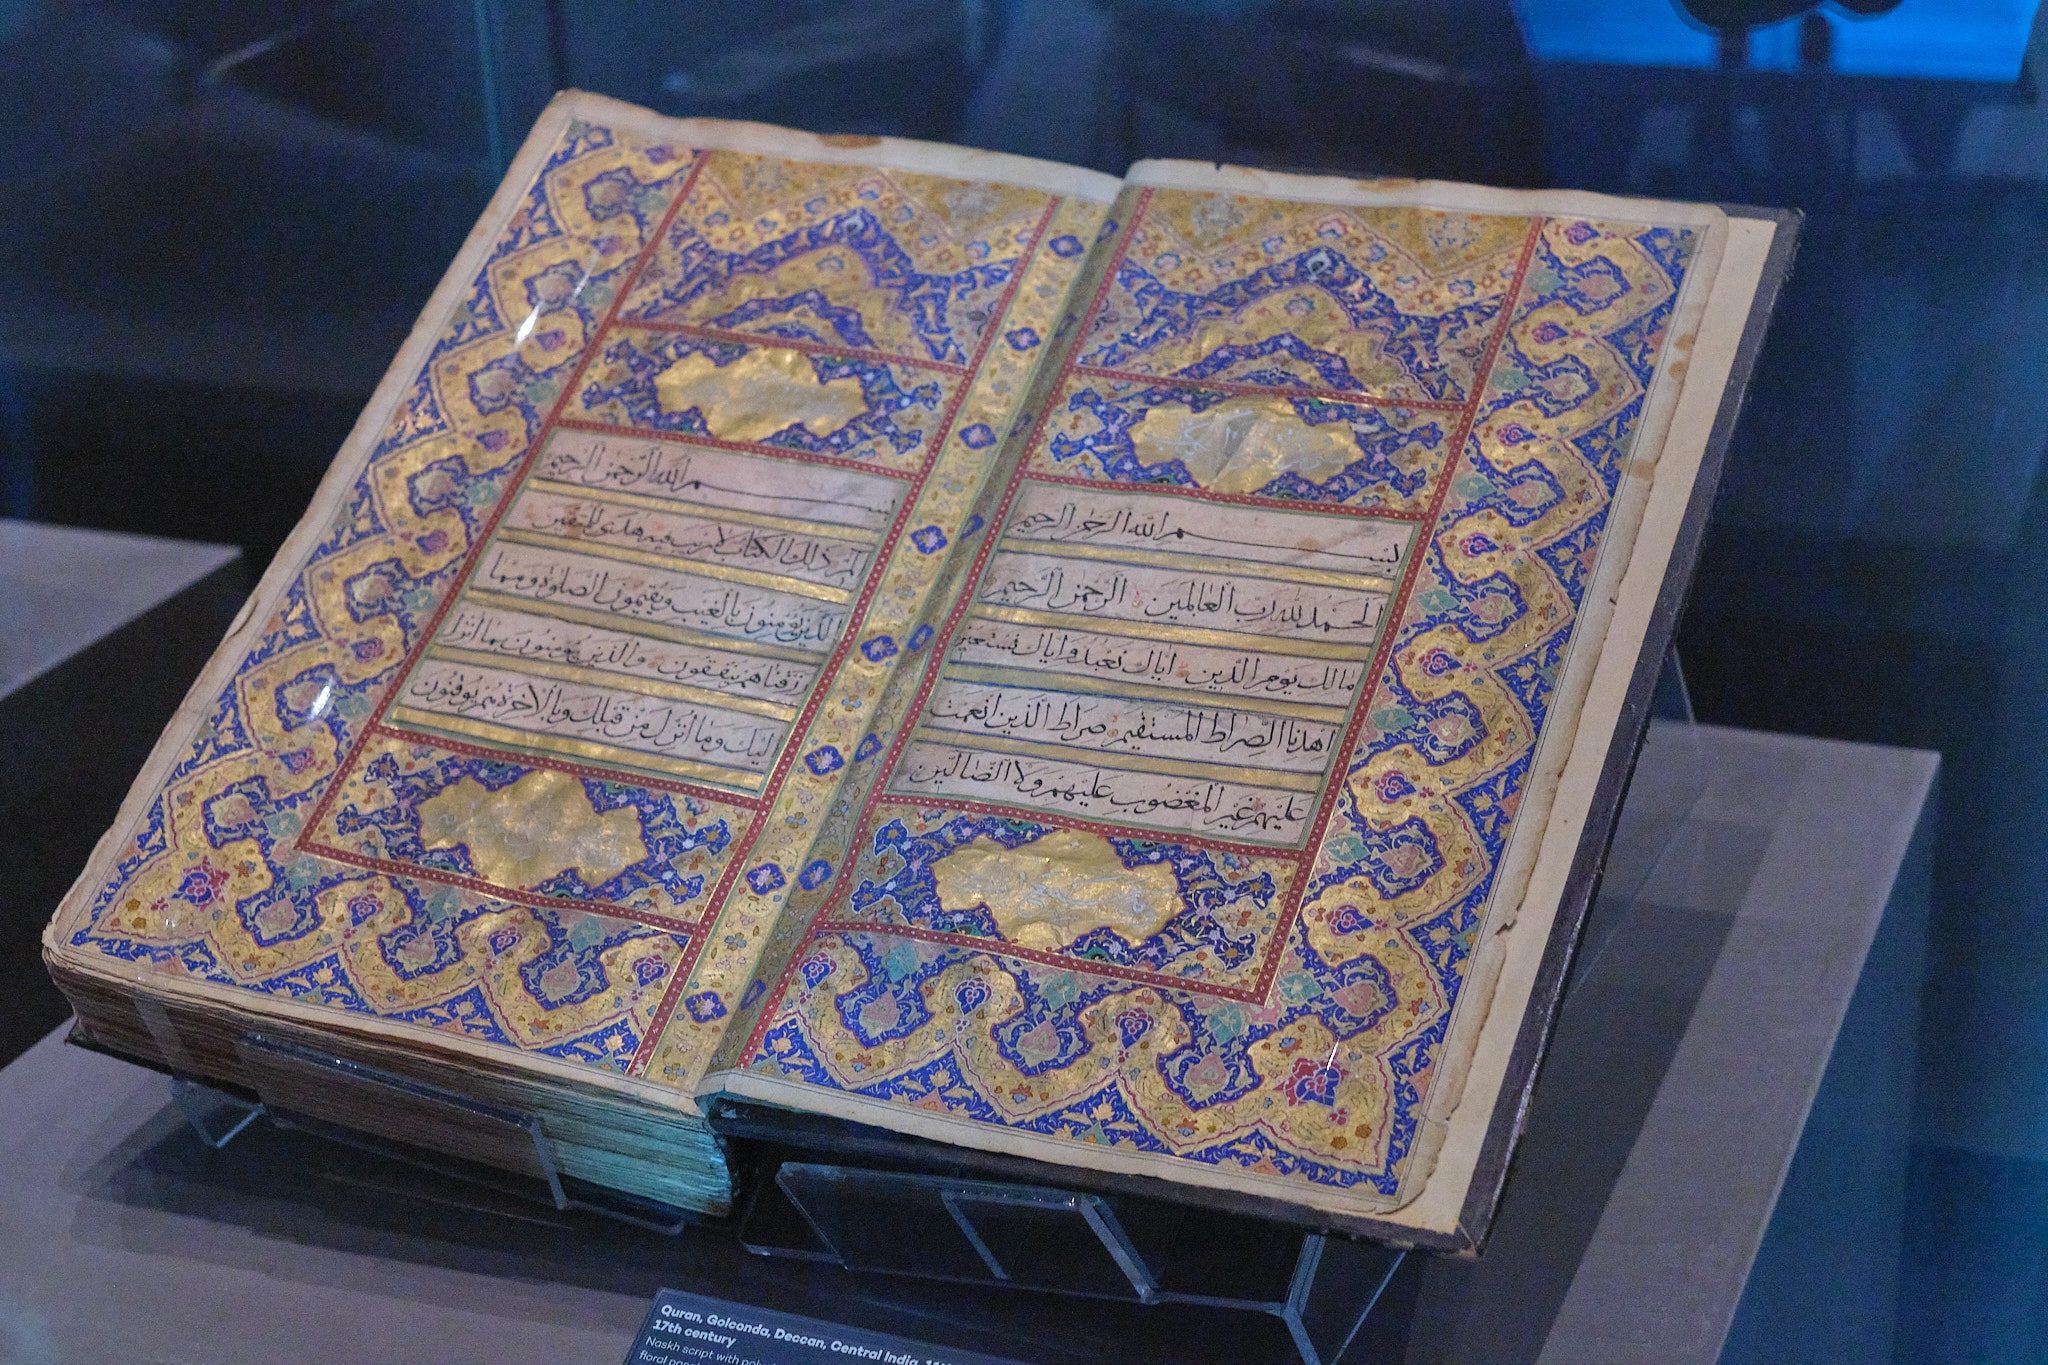 بسم الله الرحمن الرحيم
الحمد لله رب العالمين الرحمن الرحيم
مالك يوم الدين اياك نعبد واياك نستعين
اهدنا الصراط المستقيم صراط الذين انعمت
عليهم غير المغضوب عليهم ولا الضالين
بسم الله الرحمن الرحيم
الم ذلك الكتاب لا ريب فيه هدى للمتقين
الذين يؤمنون بالغيب ويقيمون الصلوة ومما
رزقناهم ينفقون والذين يؤمنون بما انزل
اليك وما انزل من قبلك وبالاخرة هم يوقنون
Quran, Golconda, Deccan, Central India,
17th century
Naskh script with
floral